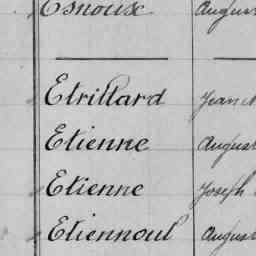 Esnoux Augus
Etrillard Jean M
Etienne August
Etienne Joseph
Etiennoul August